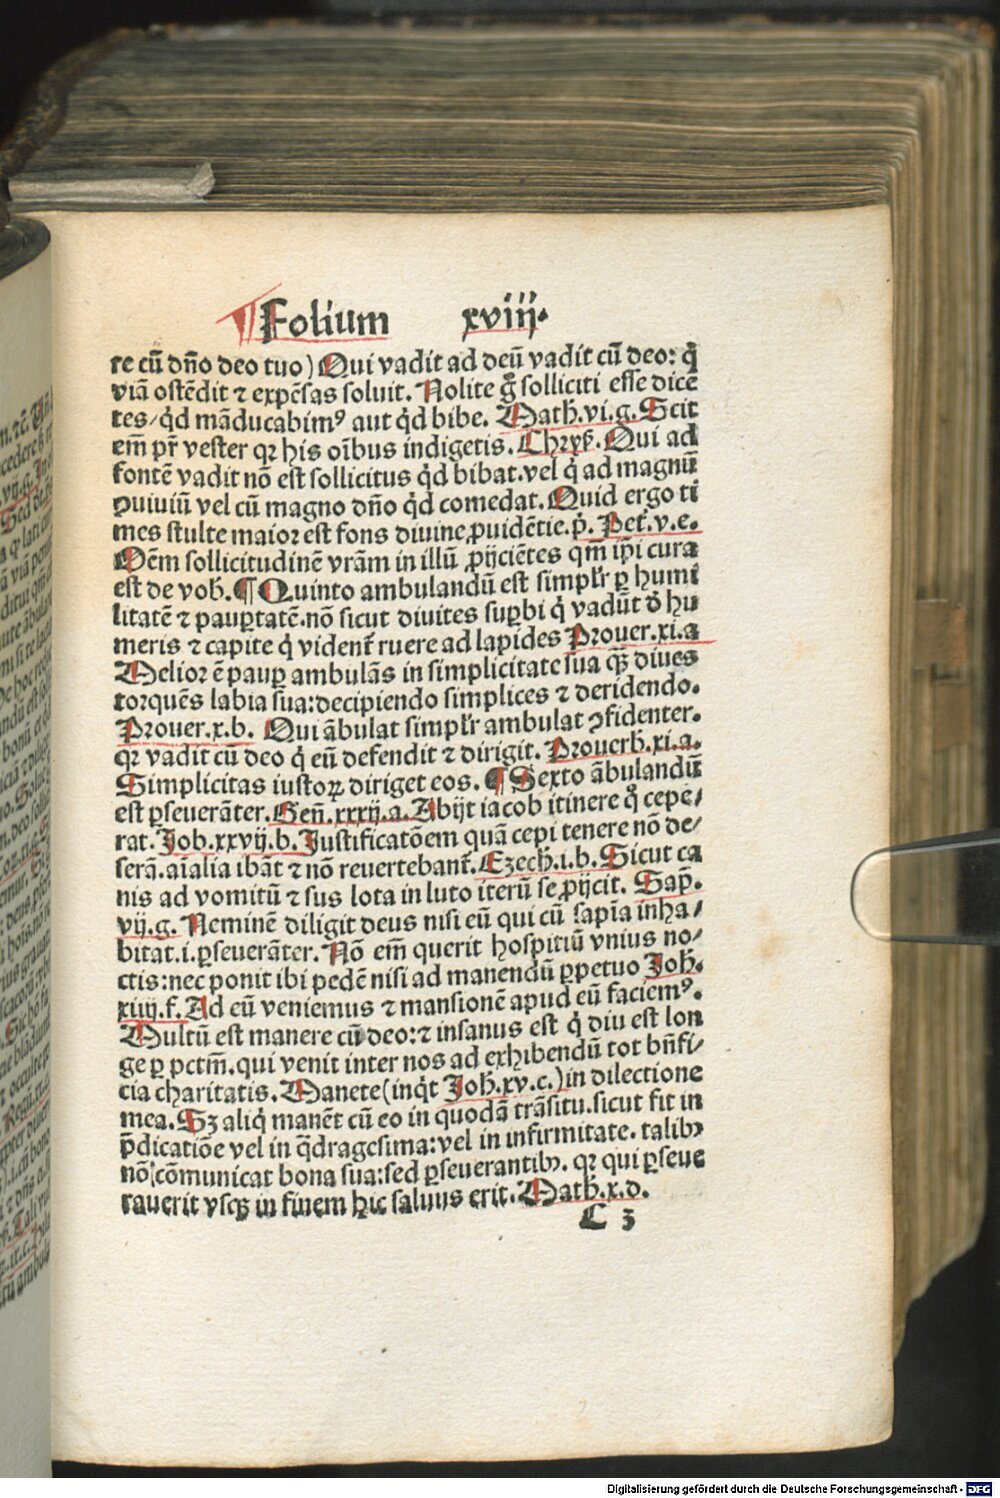 ¶Folium xviij.
re cū dño deo tuo) Qui vadit ad deū vadit cū deo: q̇
viā ostēdit ⁊ expēsas soluit. Nolite g̊ solliciti esse dicē
tes/ qd̓ māducabimꝰ aut qd̓ bibe. Math̄.vi.g. Scit
em̄ pr̄ vester qꝛ his oībus indigetis. Chrys̄. Qui ad
fontē vadit nō est sollicitus qd̓ bibat. vel q̇ ad magnū
ꝯuiuiū vel cū magno dño qd̓ comedat. Quid ergo ti
mes stulte maior est fons diuine ꝓuidētie. p̄. Pet̄.v.e.
Oēm sollicitudinē vrām in illū ꝓijciētes qm̄ ip̄i cura
est de vob̄. ¶ Quinto ambulandū est simplr̄ ꝑ humi
litatē ⁊ pauꝑtatē. nō sicut diuites suꝑbi q̇ vadūt ð hu
meris ⁊ capite q̇ vident̄ ruere ad lapides Prouer.xi.a
Melior ē pauꝑ ambulās in simplicitate sua qꝫ̄ diues
torquēs labia sua: decipiendo simplices ⁊ deridendo.
Prouer.x.b. Qui ābulat simplr̄ ambulat ꝯfidenter.
qꝛ vadit cū deo q̇ eū defendit ⁊ dirigit. Prouerb̄.xi.a.
Simplicitas iustoꝝ diriget eos. ¶ Sexto ābulandū
est ꝑseuerāter. Geñ.xxxij.a. Abijt iacob itinere q̊ cepe/
rat. Job.xxvij.b. Justificatōem quā cepi tenere nō de/
serā. aīalia ibāt ⁊ nō reuertebant̄. Ezech̄.i.b. Sicut ca
nis ad vomitū ⁊ sus lota in luto iterū se ꝓijcit. Sap̄.
vij.g. Neminē diligit deus nisi eū qui cū sapīa inha/
bitat. i. ꝑseuerāter. Nō em̄ querit hospitiū vnius no/
ctis: nec ponit ibi pedē nisi ad manendū ꝑpetuo Joh̄.
xiiij.f. Ad eū veniemus ⁊ mansionē apud eū faciemꝰ.
Multū est manere cū deo: ⁊ insanus est q̇ diu est lon
ge ꝑ pctm̄. qui venit inter nos ad exhibendū tot bñfi/
cia charitatis. Manete (inqt̓ Joh̄.xv.c.) in dilectione
mea. Sꝫ aliq̇ manēt cū eo in quodā trāsitu. sicut fit in
p̄dicatiōe vel in q̄dragesima: vel in infirmitate. talibꝫ
nō cōmunicat bona sua: sed ꝑseuerantibꝫ. qꝛ qui ꝑseue
rauerit vsqꝫ in finem hic saluus erit. Math̄.x.d.
C 3
Digitalisierung gefördert durch die Deutsche Forschungsgemeinschaft - DFG